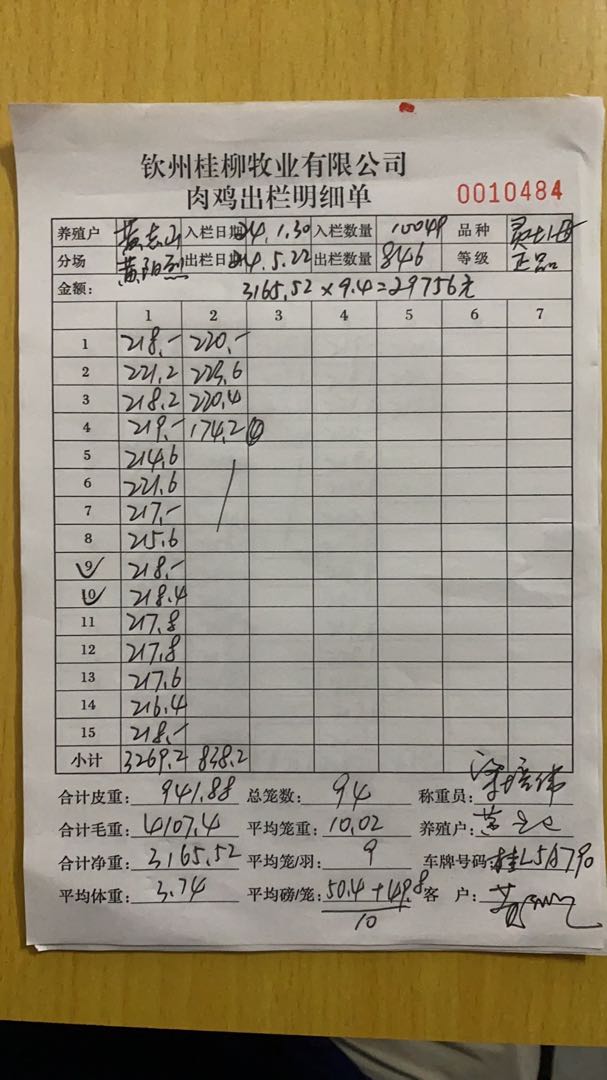 钦州桂柳牧业有限公司
肉鸡出栏明细单 0010484
养殖户 黄志山 入栏日期 24.1.30 入栏数量 10049 品种
分场 黄阳烈 出栏日期 24.5.22 出栏数量 846 等级 正品
金额： 3165.52×9.4=29756元
1 2 3 4 5 6 7
1 218.- 220.-
2 221.2 223.6
3 218.2 220.4
4 219.- 174.2 ④
5 214.6
6 221.6
7 217.-
8 215.6
9 218.-
10 218.4
11 217.8
12 217.8
13 217.6
14 216.4
15 218.-
小计 3269.2 838.2
合计皮重： 941.88 总笼数： 94 称重员：
合计毛重： 4107.4 平均笼重： 10.02 养殖户：
合计净重： 3165.52 平均笼/羽： 9 车牌号码： 桂L5A790
平均体重： 3.74 平均磅/笼： 50.4+49.8 客 户：
10